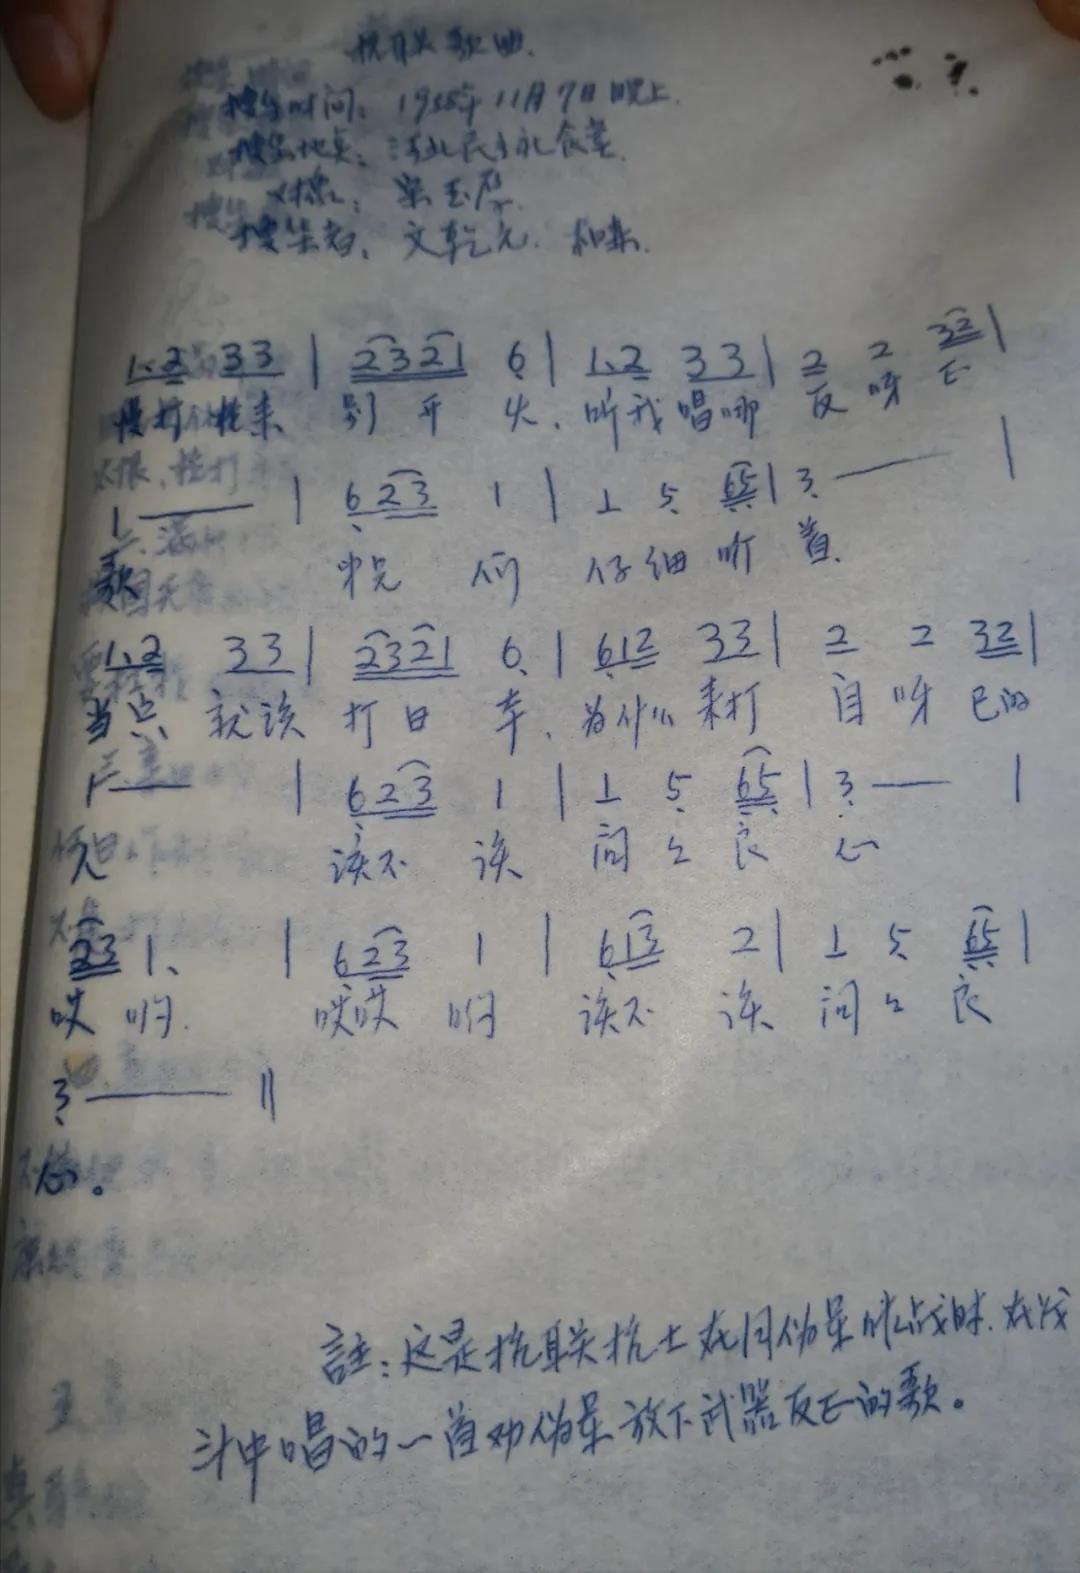 抗联歌曲.
搜集时间: 1958年11月7日晚上.
搜集地点: 河北民主礼食堂.
对象: 宋玉
搜集者, 文乾元.
1.2 33 | 2321 6 | 1.2 33 | 2 2 32 |
慢打 枪来 别开 火, 听我唱哪 反呀正
1 —— | 623 1 | 1 5 65 | 3 —— |
歌 们 仔细听着.
1.2 33 | 2321 6 | 612 33 | 2 2 32 |
当兵 就该 打日本, 为什么来打 自呀己的
1 —— | 623 1 | 1 5 65 | 3 —— |
人 该不该 问上良心
23 1. | 623 1 | 613 2 | 1 5 65 |
哎 啊. 哎哎啊 该不该 问上良
3 —— ||
心。
註: 这是抗联抗士在同伪军作战时. 在战
斗中唱的一首劝伪军放下武器反正的歌。